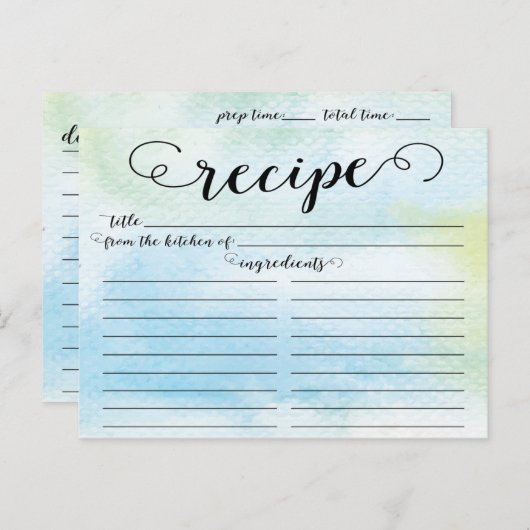 prep time:____ total time:____
recipe
title
from the kitchen of:
ingredients